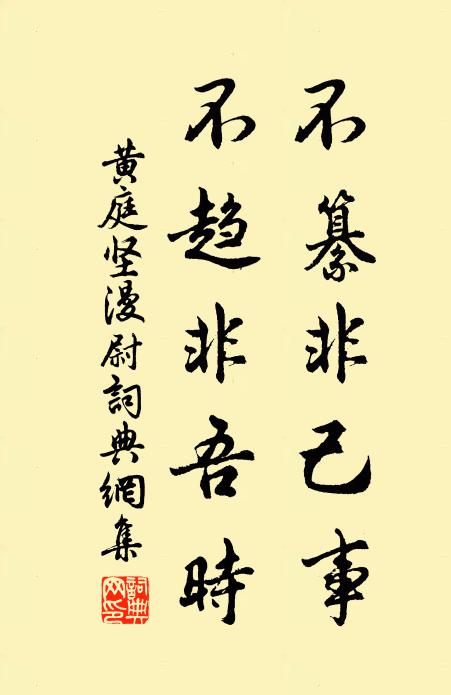 不纂非己事
不趋非吾時
黄庭坚漫尉詞典網集
詞典網印